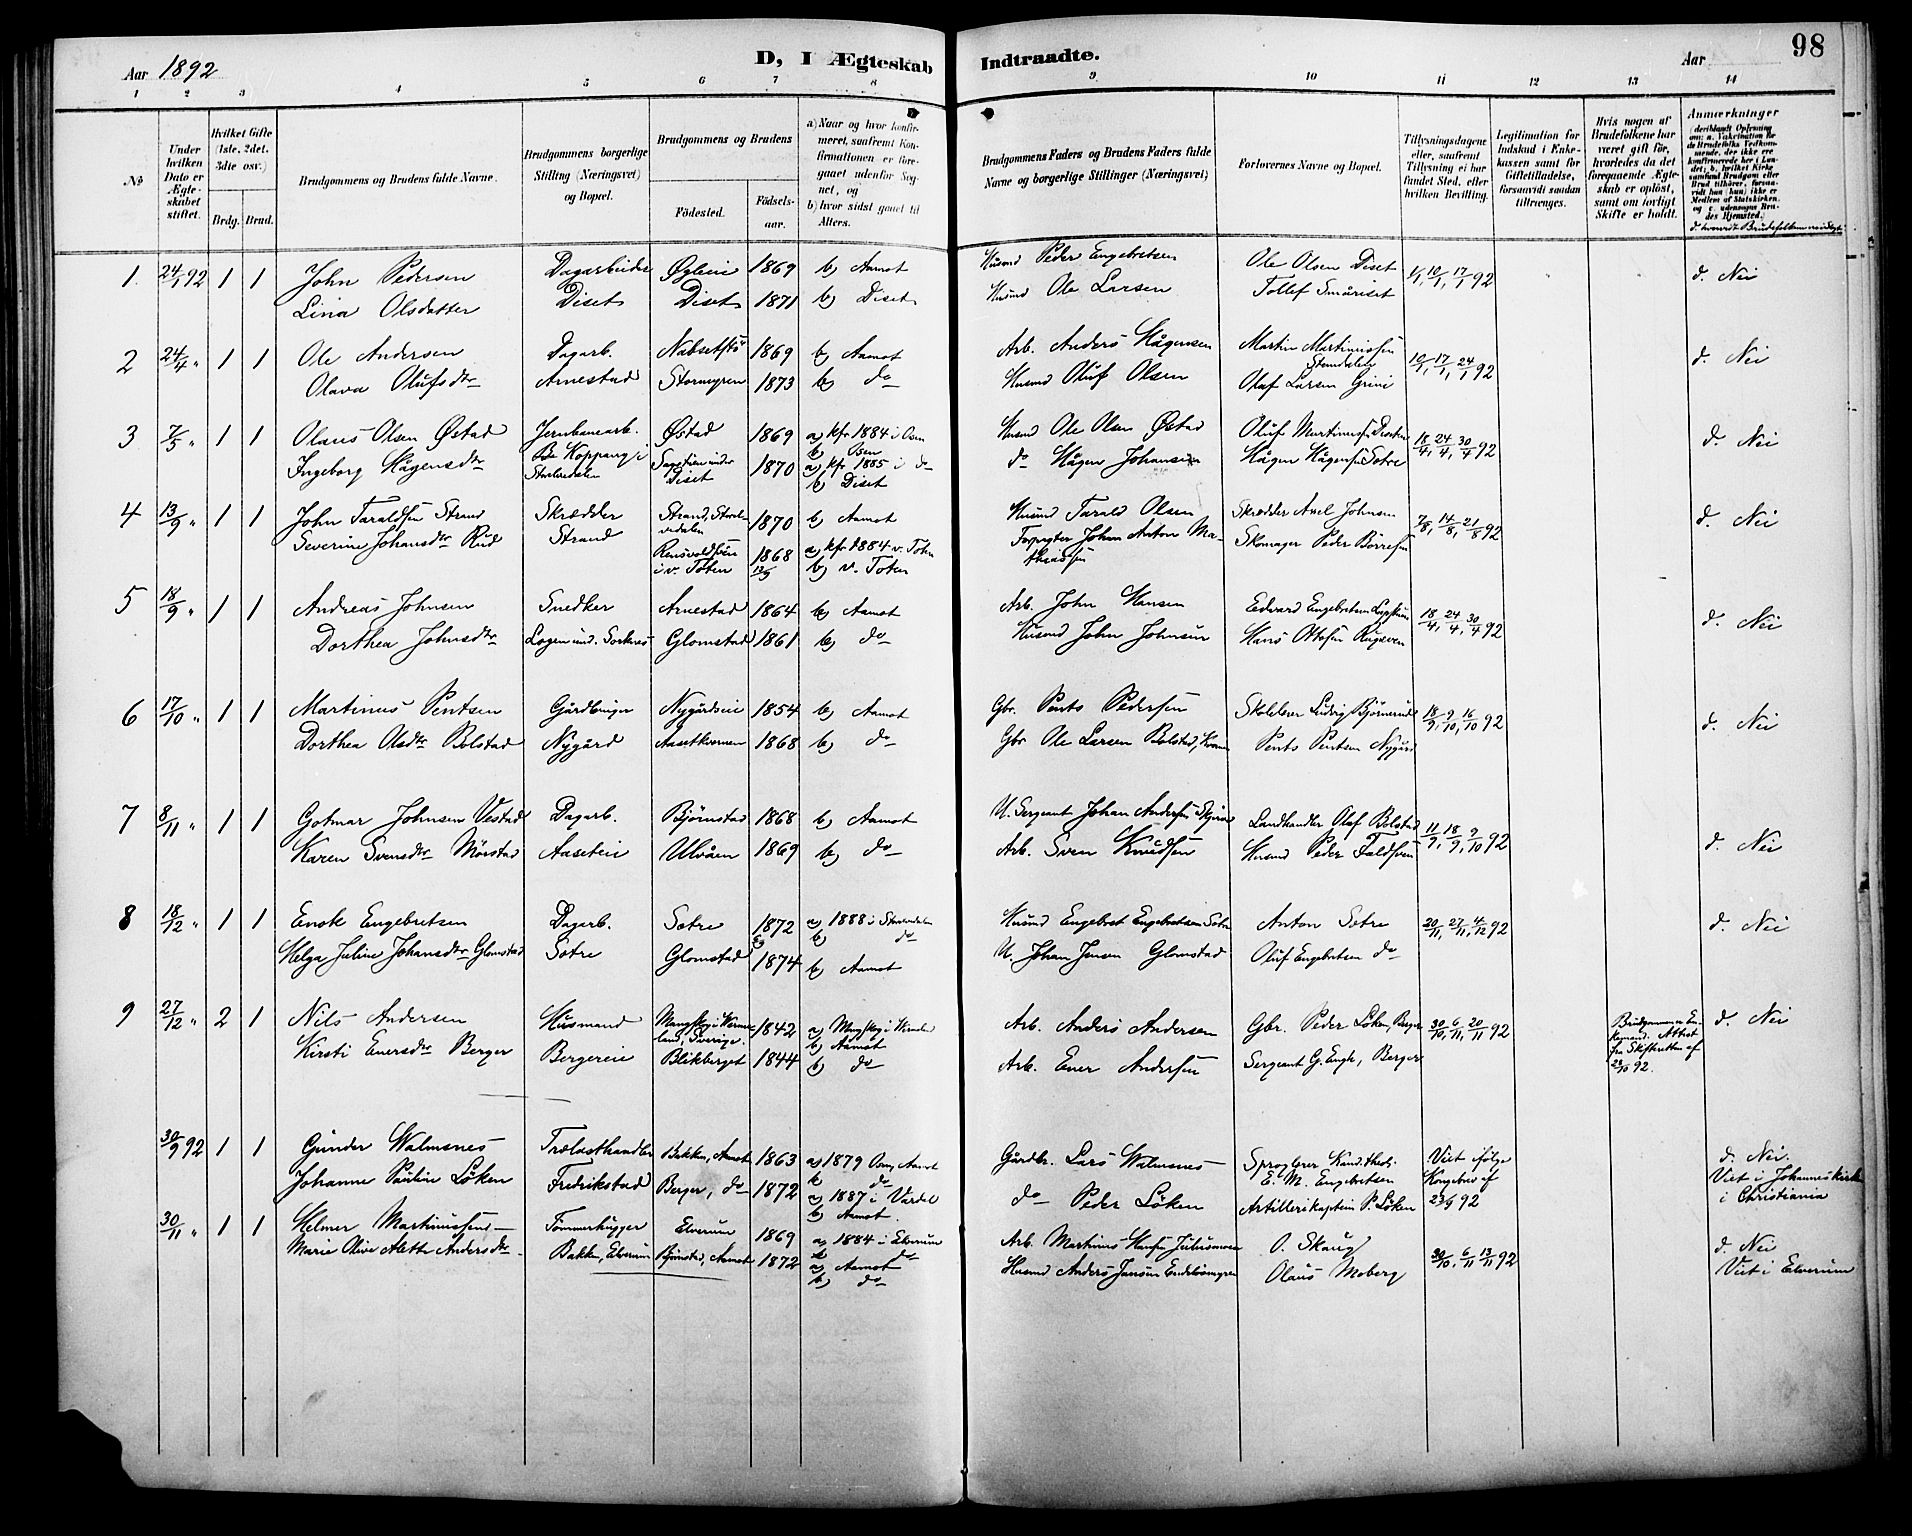 Aar 1892
D, I Ægteskab Indtraadte.
Aar
98
1 2 3 4 5 6 7 8 9 10 11 12 13 14
No
Under hvilken Dato er Ægteskabet stiftet.
Hvilket Gifte (1ste, 2det, 3die osv.)
Brdg. Brud.
Brudgommens og Brudens fulde Navne.
Brudgommens borgerlige Stilling (Næringsvei) og Bopæl.
Brudgommens og Brudens
Fødested.
Fødselsaar.
a) Naar og hvor konfirmeret, saafremt Konfirmationen er foregaaet udenfor Sognet, og
b) hvor sidst gaaet til Alters.
Brudgommens Faders og Brudens Faders fulde Navne og borgerlige Stillinger (Næringsvei)
Forlovernes Navne og Bopæl.
Tillysningsdagene eller, saafremt Tillysning ei har fundet Sted, efter hvilken Bevilling.
Legitimation for Indskud i Enkekassen samt for Giftetilladelse, forsaavidt saadan tiltrænges.
Hvis nogen af Brudefolkene har været gift før, hvorledes da det foregaaende Ægteskab er opløst, samt om lovligt Skifte er holdt.
Anmærkninger
1 24/1 92 1 1 John Pedersen Dagarbeider Øgleie 1869 b) Aamot Husmd Peder Engebretsen Ole Olsen Diset 1/1, 10/1, 17/1 92 d. Nei
Lina Olsdatter Diset Diset 1871 b) Diset Husmd Ole Larsen Tollef Småriset
2 24/4 " 1 1 Ole Andersen Dagarb. Nabsetstö 1869 b) Aamot Arb. Anders Hågensen Martin Martinussen 10/1, 17/1, 24/1 92 d. Nei
Olava Olufsdtr Arnestad Stormyren 1873 b) do Husmd Oluf Olsen Olaf Larsen Grini
3 7/5 " 1 1 Olaus Olsen Østad Jernbanearb. Østad 1869 a) kfr 1884 i Osen Husmd Ole Olsen Østad Oluf Martinussen 18/4, 24/4, 30/4 92 d. Nei
b) Osen
Ingeborg Hågensdtr Koppang i Storelvedalen Diset 1870 a) kfr 1885 i do do Hågen Johansen Hågen Hågensen Sotre
b) Diset
4 13/9 " 1 1 John Taraldsen Strand Skrædder Strand, Storelvedalen 1870 b) Aamot Husmd Tarald Olsen Skrædder Axel Johnsen 7/8, 14/8, 21/8 92 d. Nei
Severine Johansdtr Rud Strand i v. Toten 1868 a) kfr 1884 v. Toten Forpagter Johan Anton Mathiassen Skomager Peder Börresen
b) v. Toten
5 18/9 " 1 1 Andreas Johnsen Snedker Arnestad 1864 b) Aamot Arb. John Hansen Edvard Engebretsen 18/4, 24/4, 30/4 92 d. Nei
Dorthea Johnsdtr Løgen und. Sorknes Glomstad 1861 b) do Husmd John Johnsen Hans Ottosen
6 17/10 " 1 1 Martinus Pentsen Gårdbruger Nygårdseie 1854 b) Aamot Gbr. Pents Pedersen Skolelærer Ludvig Björnerud 18/9, 9/10, 16/10 92 d. Nei
Dorthea Olsdtr Bolstad Nygård Aasetkvernen 1868 b) do Gbr Ole Larsen Bolstad Pents Pentsen Nygård
7 8/11 " 1 1 Gotmar Johnsen Vestad Dagarb. Bjørnstad 1868 b) Aamot U. Sergeant Johan Andersen Landhandler Olaf Bolstad 11/9, 18/9, 9/10 92 d. Nei
Karen Svensdtr Mörstad Aaseteie Ulvåen 1869 b) do Arb. Sven Knudsen Husmd Peder
8 18/12 " 1 1 Ensk Engebretsen Dagarb. Sotre 1872 a) 1888 i Storelvdalen Husmd Engebret Engebretsen Sotre Anton Sotre 20/11, 27/11, 4/12 92 d. Nei
b) do
Helga Juline Johansdtr Glomstad Sotre Glomstad 1874 b) Aamot U. Johan Jensen Glomstad Oluf Engebretsen do
9 27/12 " 2 1 Nils Andersen Husmand Mangskog i Wermeland, Sverige. 1842 a) Mangskog i Wermeland Arb. Anders Andersen Gbr. Peder Löken, Berger 30/10, 6/11, 20/11 92 Brudgommen Enkemand. Attest fra Skifteretten af 28/10 92. d. Nei
b) Aamot
Kirsti Enersdtr Berger Bergereie Blikberget 1844 b) do Arb. Ener Andersen Sergeant G. Engh, Berger
30/9 92 1 1 Gunder Walmsnes Trælasthandler Bakken, Aamot 1863 a) 1879 Aamot Gårdbr. Lars Walmsnes Sproglærer Kand. theol. E. M. Engebretsen Viet ifölge Kongebrev af 23/9 92 d. Nei.
b) do
Johanne Pauline Löken Fredrikstad Berger, do 1872 a) 1887 i Vardal do Peder Löken Artillerikaptein P. Löken Viet i Johanneskirken i Christiania
b) Aamot.
30/11 " 1 1 Helmer Martinussen Tömmerhugger Elverum 1869 a) 1884 i Elverum Arb. Martinus Hansen Julusmoen O. Skaug 30/10, 6/11, 13/11 92 d. Nei
b) do
Marie Olive Aletta Andersdtr Bakken, Elverum Bjørnstad, Aamot 1872 a) Aamot Husmd Anders Jensen Olaus Moberg Viet i Elverum
b) do